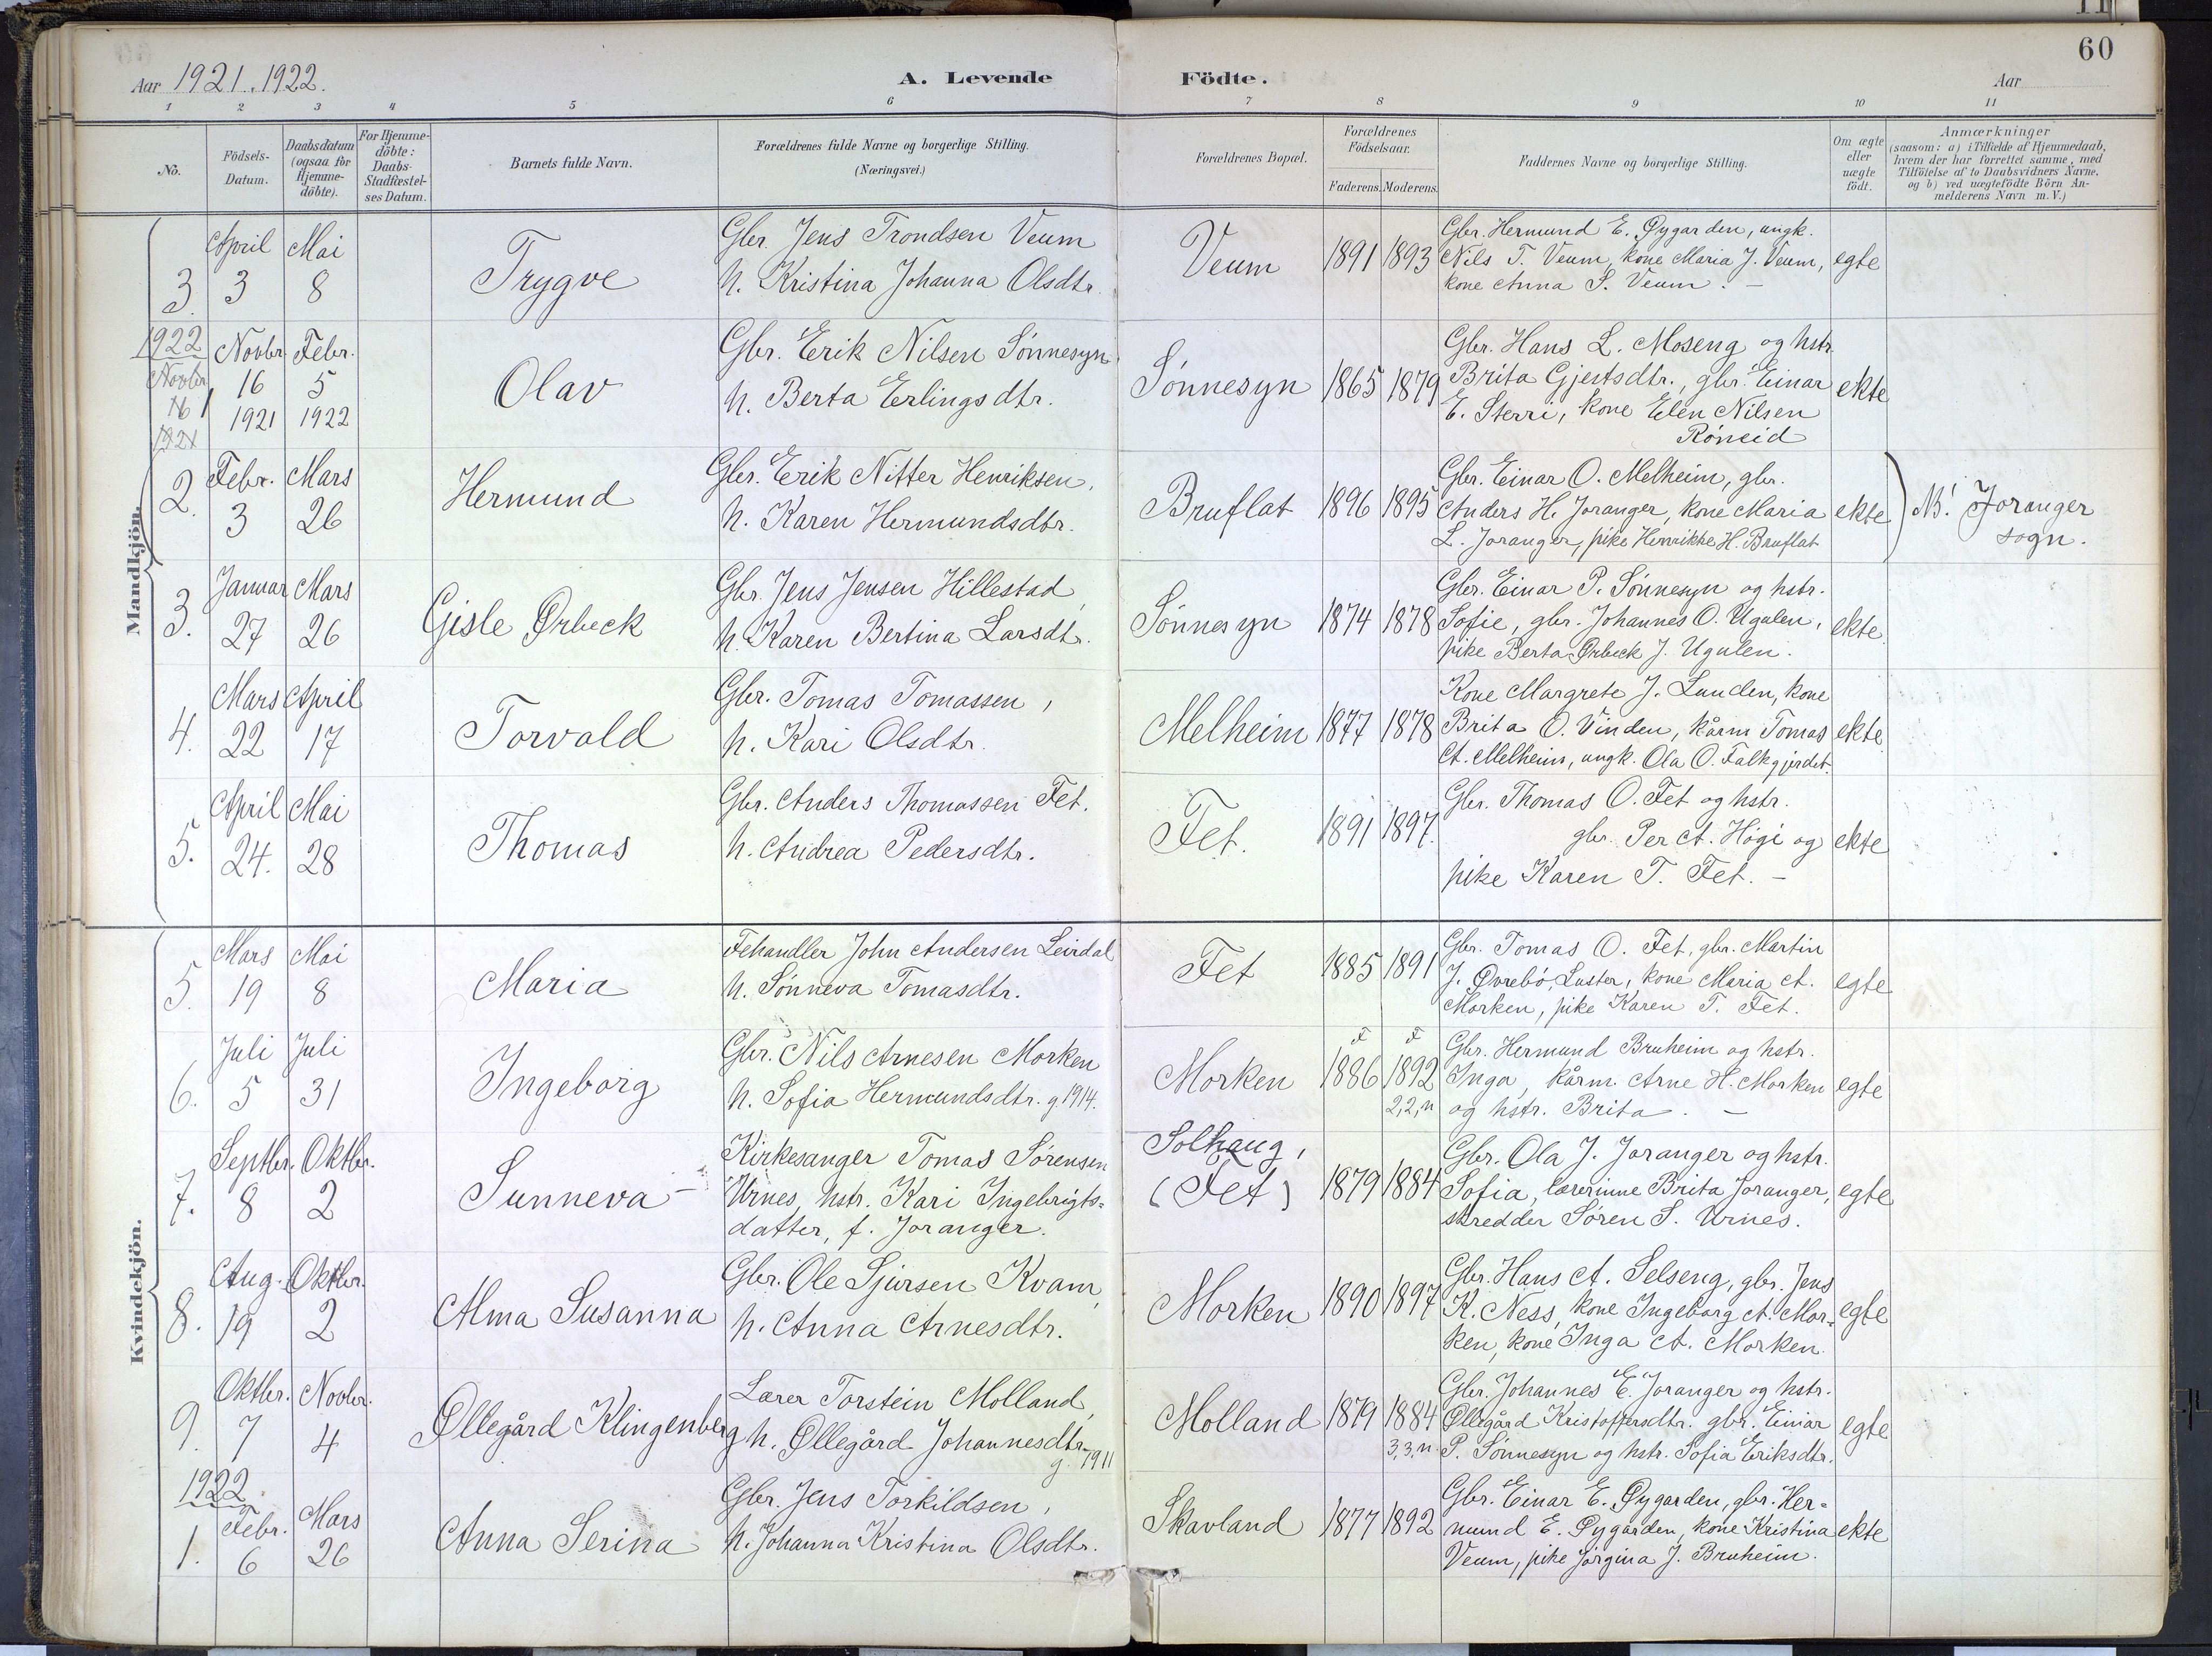 60
Aar 1921.1922.
A. Levende Födte.
Aar
1 2 3 4 5 6 7 8 9 10 11
No.
Födsels-
Datum.
Daabsdatum
(ogsaa for
Hjemme-
döbte).
For Hjemme-
döbte:
Daabs-
Stadfæstel-
ses Datum.
Barnets fulde Navn.
Forældrenes fulde Navne og borgerlige Stilling.
(Næringsvei.)
Forældrenes Bopæl.
Forældrenes
Födselsaar.
Faderens. Moderens.
Faddernes Navne og borgerlige Stilling.
Om ægte
eller
uægte
födt.
Anmærkninger
(saasom: a) i Tilfælde af Hjemmedaab,
hvem der har forrettet samme, med
Tilföielse af to Daabsvidners Navne,
og b) ved uægtefödte Börn An-
melderens Navn m. V.)
Mandkjön.
3.
April
3
Mai
8
Trygve
Gbr. Jens Trondsen Veum
h. Kristina Johanna Olsdtr.
Veum
1891 1893
Gbr. Hermund E. Øygarden, ungk.
Nils T. Veum, kone Maria J. Veum,
kone Anna S. Veum. –
egte
1922
Novbr
16 1
1921
Novbr.
16
1921
Febr.
5
1922
Olav
Gbr. Erik Nilsen Sønnesyn
h. Berta Erlingsdtr.
Sønnesyn
1865 1879
Gbr. Hans L. Moseng og hstr.
Brita Gjertsdtr., gbr. Einar
E. Sterri, kone Elen Nilsen
Røneid
ekte
2.
Febr.
3
Mars
26
Hermund
Gbr. Erik Nitter Henriksen,
h. Karen Hermundsdtr.
Bruflat
1896 1895
Gbr. Einar O. Melheim, gbr.
Anders H. Joranger, kone Maria
L. Joranger, pike Henrikke H. Bruflat
ekte
NB! Joranger
sogn.
3.
Januar
27
Mars
26
Gisle Ørbeck
Gbr. Jens Jensen Hillestad,
h. Karen Bertina Larsdtr.
Sønnesyn
1874 1878
Gbr. Einar P. Sønnesyn og hstr.
Sofie, gbr. Johannes O. Ugulen,
pike Berta Ørbeck J. Ugulen.
ekte
4.
Mars
22
April
17
Torvald
Gbr. Tomas Tomassen,
h. Kari Olsdtr.
Melheim
1877 1878
Kone Margrete J. Lunden, kone
Brita O. Vinden, kårm Tomas
A. Melheim, ungk. Ola O. Falkgjerdet.
ekte
5.
April
24.
Mai
28
Thomas
Gbr. Anders Thomassen Fet.
h. Andrea Pedersdtr.
Fet.
1891 1897.
Gbr. Thomas O. Fet og hstr.
gbr. Per A. Høgi og
pike Karen T. Fet. –
ekte
Kvindekjön.
5.
Mars
19
Mai
8
Maria
Fehandler John Andersen Leirdal
h. Sønneva Tomasdtr.
Fet
1885 1891
Gbr. Tomas O. Fet, gbr. Martin
J. Øvrebø, Luster, kone Maria A.
Morken, pike Karen T. Fet.
egte
6.
Juli
5
Juli
31
Ingeborg
Gbr. Nils Arnesen Morken
h. Sofia Hermundsdtr. g. 1914.
Morken
F F
1886 1892
2,2,n
Gbr. Hermund Bruheim og hstr.
Inga, kårm. Arne H. Morken
og hstr. Brita. –
egte
7.
Septbr.
8
Oktbr.
2
Sunneva –
Kirkesanger Tomas Sørensen
Urnes, hstr. Kari Ingebrigts=
datter, f. Joranger.
Solhaug,
(Fet)
1879 1884
Gbr. Ola J. Joranger og hstr.
Sofia, lærerinne Brita Joranger,
skredder Søren S. Urnes.
egte
8.
Aug.
19
Oktbr.
2
Alma Susanna
Gbr. Ole Sjursen Kvam,
h. Anna Arnesdtr.
Morken
1890 1897
Gbr. Hans A. Selseng, gbr. Jens
K. Ness, kone Ingeborg A. Mor=
ken, kone Inga A. Morken.
egte
9.
Oktbr.
7
Novbr.
4
Øllegård Klingenberg
Lærer Torstein Molland,
h. Øllegård Johannesdtr.
g. 1911
Molland
1879 1884
3,3,n
Gbr. Johannes E. Joranger og hstr.
Øllegård Kristoffersdtr. gbr. Einar
P. Sønnesyn og hstr. Sofia Eriksdtr.
egte
1922
1.
Febr.
6
Mars
26
Anna Serina
Gbr. Jens Torkildsen,
h. Johanna Kristina Olsdtr.
Skavland
1877 1892
Gbr. Einar E. Øygarden, gbr. Her=
mund E. Øygarden, kone Kristina
Veum, pike Jørgina J. Bruheim.
ekte